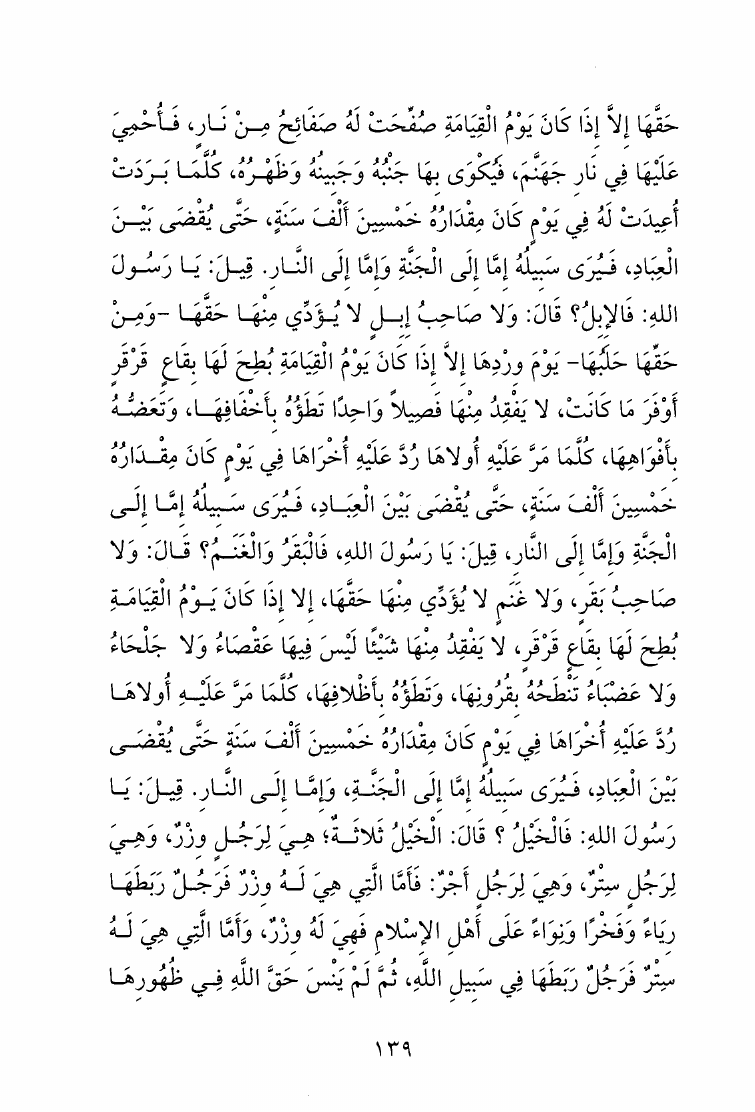 حَقَّهَا إِلاَّ إِذَا كَانَ يَوْمُ الْقِيَامَةِ صُفِّحَتْ لَهُ صَفَائِحُ مِنْ نَارٍ، فَأُحْمِيَ
عَلَيْهَا فِي نَارِ جَهَنَّمَ، فَيُكْوَى بِهَا جَنْبُهُ وَجَبِينُهُ وَظَهْرُهُ، كُلَّمَا بَرَدَتْ
أُعِيدَتْ لَهُ فِي يَوْمٍ كَانَ مِقْدَارُهُ خَمْسِينَ أَلْفَ سَنَةٍ، حَتَّى يُقْضَى بَيْنَ
الْعِبَادِ، فَيُرَى سَبِيلُهُ إِمَّا إِلَى الْجَنَّةِ وَإِمَّا إِلَى النَّارِ. قِيلَ: يَا رَسُولَ
اللهِ: فَالإِبِلُ؟ قَالَ: وَلا صَاحِبُ إِبِلٍ لا يُؤَدِّي مِنْهَا حَقَّهَا -وَمِنْ
حَقِّهَا حَلَبُهَا- يَوْمَ وِرْدِهَا إِلاَّ إِذَا كَانَ يَوْمُ الْقِيَامَةِ بُطِحَ لَهَا بِقَاعٍ قَرْقَرٍ
أَوْفَرَ مَا كَانَتْ، لا يَفْقِدُ مِنْهَا فَصِيلاً وَاحِدًا تَطَؤُهُ بِأَخْفَافِهَا، وَتَعَضُّهُ
بِأَفْوَاهِهَا، كُلَّمَا مَرَّ عَلَيْهِ أُولاهَا رُدَّ عَلَيْهِ أُخْرَاهَا فِي يَوْمٍ كَانَ مِقْدَارُهُ
خَمْسِينَ أَلْفَ سَنَةٍ، حَتَّى يُقْضَى بَيْنَ الْعِبَادِ، فَيُرَى سَبِيلُهُ إِمَّا إِلَى
الْجَنَّةِ وَإِمَّا إِلَى النَّارِ، قِيلَ: يَا رَسُولَ اللهِ، فَالْبَقَرُ وَالْغَنَمُ؟ قَالَ: وَلا
صَاحِبُ بَقَرٍ، وَلا غَنَمٍ لا يُؤَدِّي مِنْهَا حَقَّهَا، إِلا إِذَا كَانَ يَوْمُ الْقِيَامَةِ
بُطِحَ لَهَا بِقَاعٍ قَرْقَرٍ، لا يَفْقِدُ مِنْهَا شَيْئًا لَيْسَ فِيهَا عَقْصَاءُ وَلا جَلْحَاءُ
وَلا عَضْبَاءُ تَنْطَحُهُ بِقُرُونِهَا، وَتَطَؤُهُ بِأَظْلافِهَا، كُلَّمَا مَرَّ عَلَيْهِ أُولاهَا
رُدَّ عَلَيْهِ أُخْرَاهَا فِي يَوْمٍ كَانَ مِقْدَارُهُ خَمْسِينَ أَلْفَ سَنَةٍ حَتَّى يُقْضَى
بَيْنَ الْعِبَادِ، فَيُرَى سَبِيلُهُ إِمَّا إِلَى الْجَنَّةِ، وَإِمَّا إِلَى النَّارِ. قِيلَ: يَا
رَسُولَ اللهِ: فَالْخَيْلُ ؟ قَالَ: الْخَيْلُ ثَلاثَةٌ؛ هِيَ لِرَجُلٍ وِزْرٌ، وَهِيَ
لِرَجُلٍ سِتْرٌ، وَهِيَ لِرَجُلٍ أَجْرٌ: فَأَمَّا الَّتِي هِيَ لَهُ وِزْرٌ فَرَجُلٌ رَبَطَهَا
رِيَاءً وَفَخْرًا وَنِوَاءً عَلَى أَهْلِ الإِسْلامِ فَهِيَ لَهُ وِزْرٌ، وَأَمَّا الَّتِي هِيَ لَهُ
سِتْرٌ فَرَجُلٌ رَبَطَهَا فِي سَبِيلِ اللَّهِ، ثُمَّ لَمْ يَنْسَ حَقَّ اللَّهِ فِي ظُهُورِهَا
١٣٩